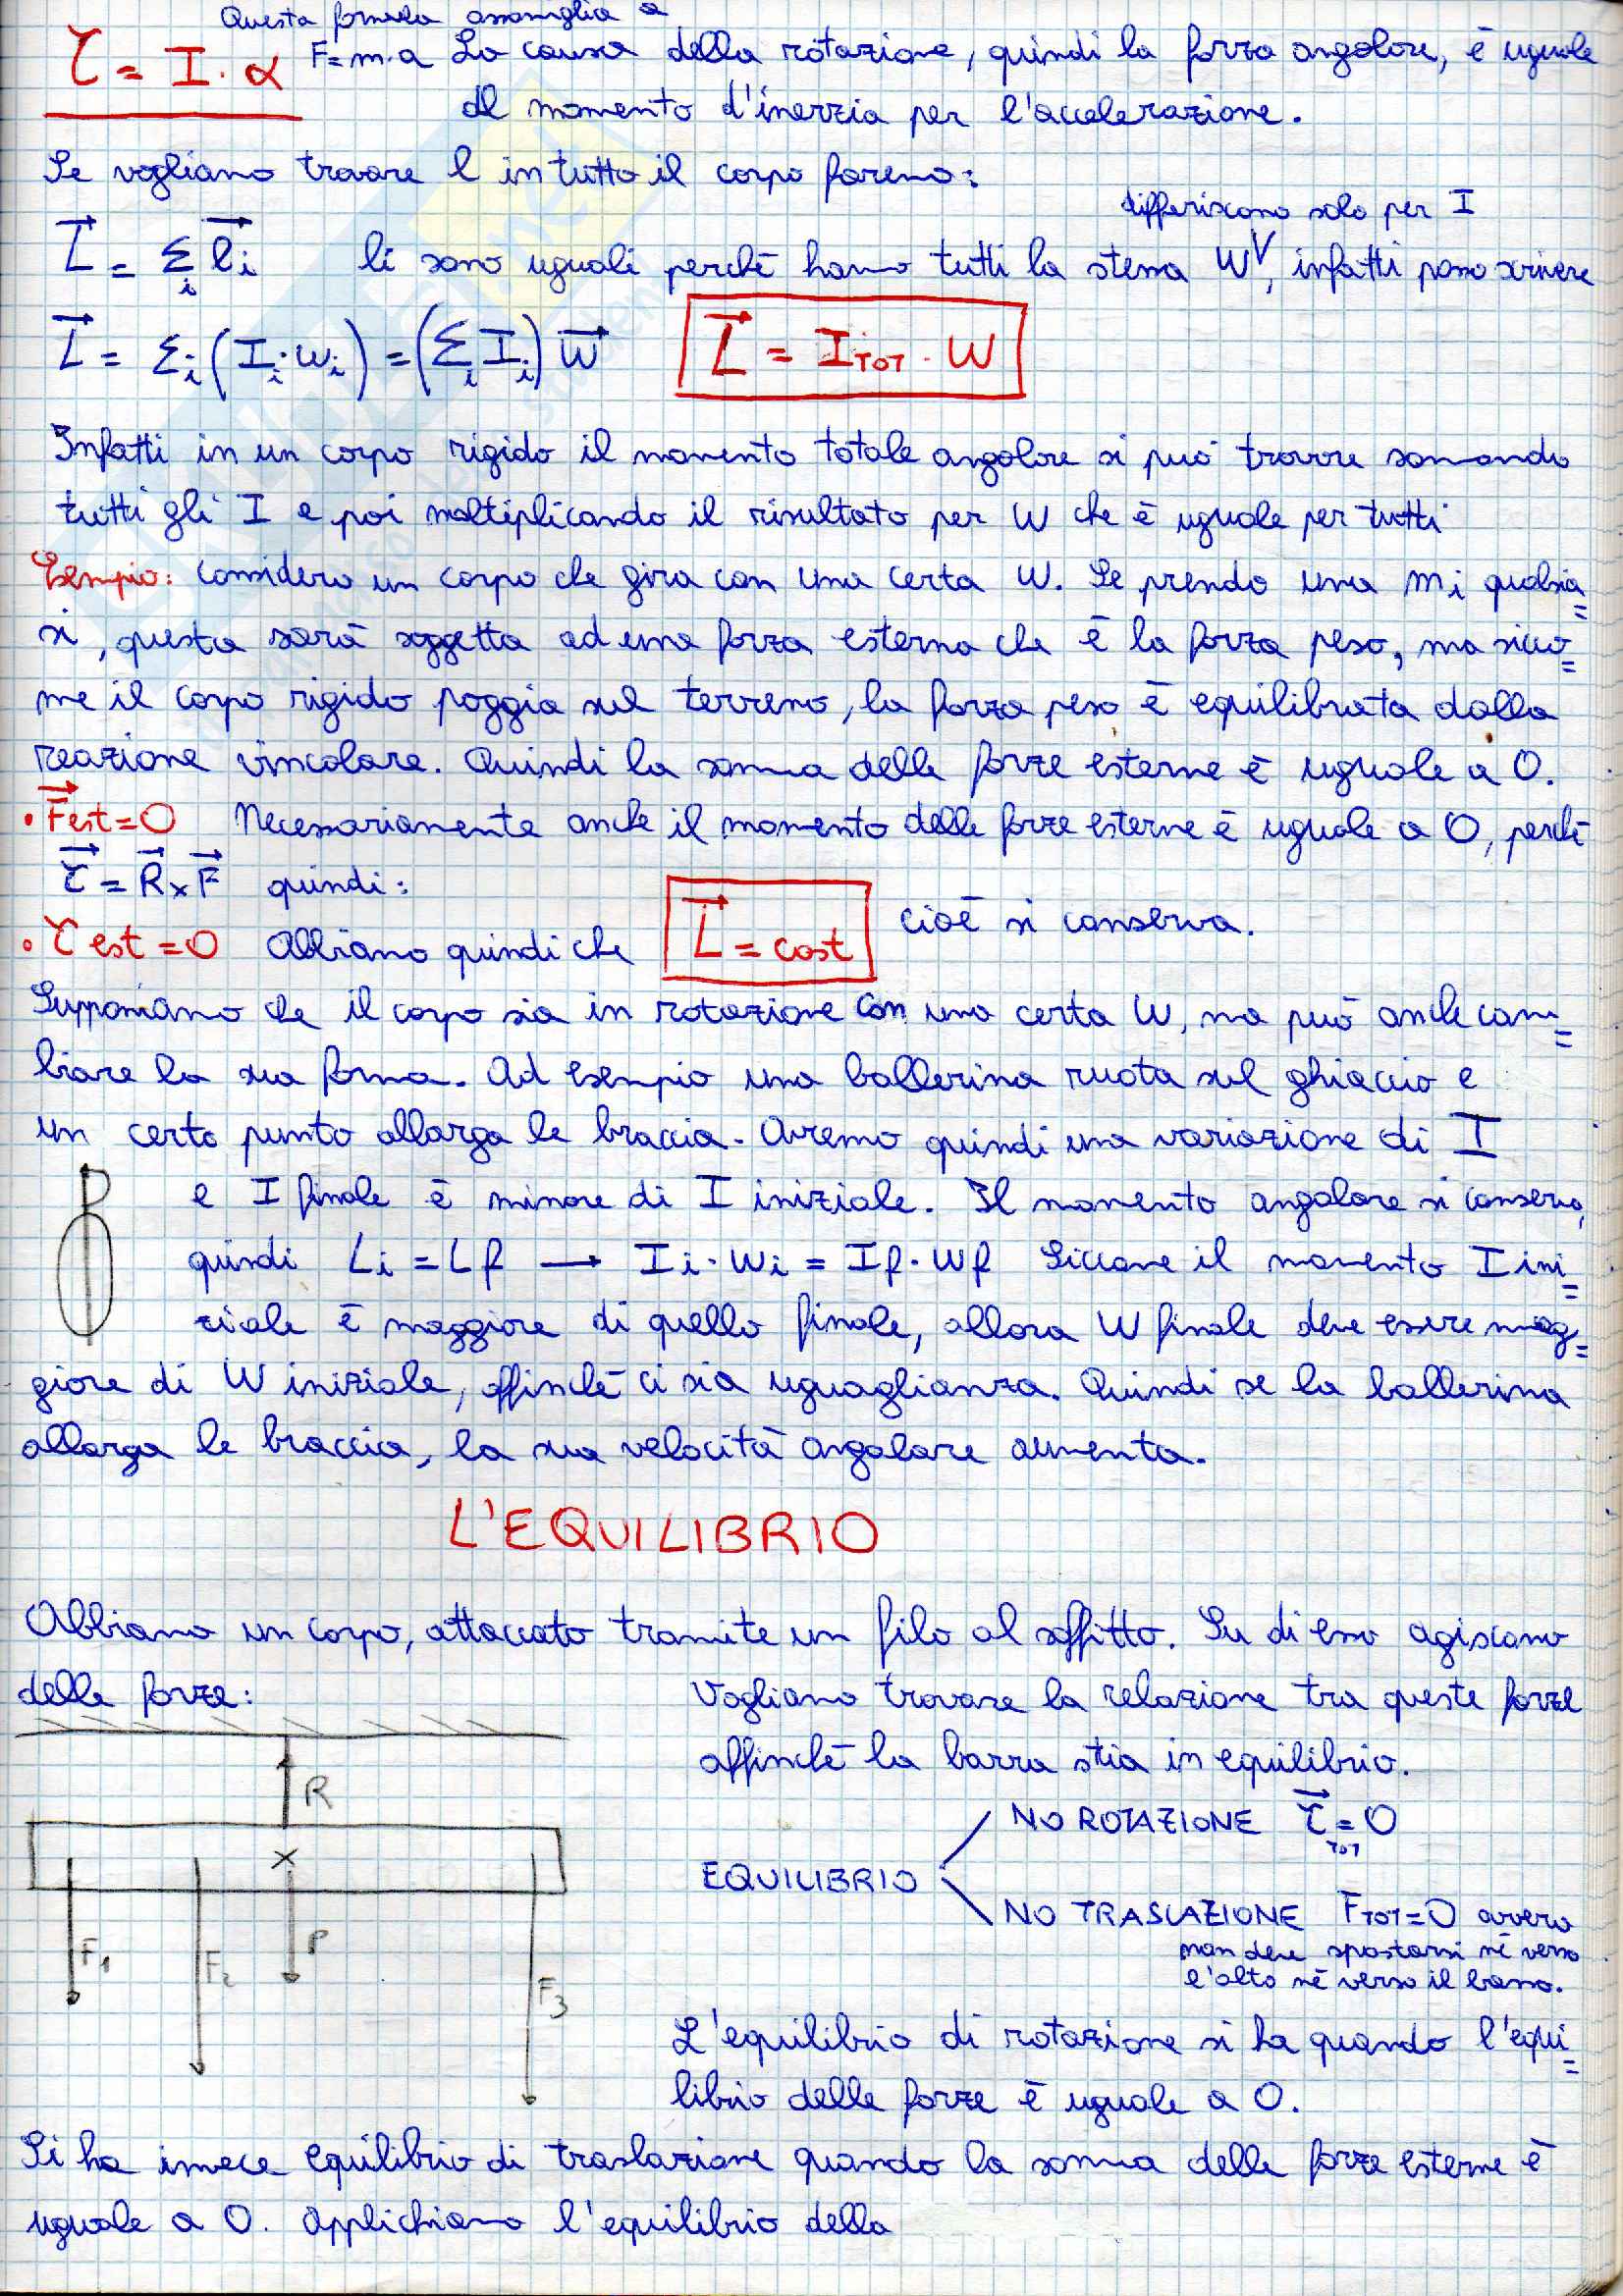 Questa formula assomiglia a
τ = I · α F = m·a La causa della rotazione, quindi la forza angolare, è uguale
al momento d'inerzia per l'accelerazione.
Se vogliamo trovare l in tutto il corpo faremo:
differiscono solo per I
L = Σi li li sono uguali perché hanno tutti la stessa W, infatti posso scrivere
L = Σi (Ii · wi) = (Σi Ii) W L = ITOT · W
Infatti in un corpo rigido il momento totale angolare si può trovare sommando
tutti gli I e poi moltiplicando il risultato per W che è uguale per tutti
Esempio: considero un corpo che gira con una certa W. Se prendo una mi qualsia=
si, questa sarà soggetta ad una forza esterna che è la forza peso, ma sicco=
me il corpo rigido poggia sul terreno, la forza peso è equilibrata dalla
reazione vincolare. Quindi la somma delle forze esterne è uguale a 0.
• Fest = 0 Necessariamente anche il momento delle forze esterne è uguale a 0, perché
τ = R x F quindi:
• τ est = 0 Abbiamo quindi che L = cost cioè si conserva.
Supponiamo che il corpo sia in rotazione con una certa W, ma può anche cam=
biare la sua forma. Ad esempio una ballerina ruota sul ghiaccio e
un certo punto allarga le braccia. Avremo quindi una variazione di I
e I finale è minore di I iniziale. Il momento angolare si conserva,
quindi Li = Lf → Ii · wi = If · wf Siccome il momento I ini=
ziale è maggiore di quello finale, allora W finale deve essere mag=
giore di W iniziale, affinché ci sia uguaglianza. Quindi se la ballerina
allarga le braccia, la sua velocità angolare aumenta.
L'EQUILIBRIO
Abbiamo un corpo, attaccato tramite un filo al soffitto. Su di esso agiscono
delle forze: Vogliamo trovare la relazione tra queste forze
affinché la barra stia in equilibrio.
R
NO ROTAZIONE τTOT = 0
X
EQUILIBRIO
NO TRASLAZIONE FTOT = 0 ovvero
non deve spostarsi né verso
l'alto né verso il basso.
F1 F2 P F3
L'equilibrio di rotazione si ha quando l'equi=
librio delle forze è uguale a 0.
Si ha invece equilibrio di traslazione quando la somma delle forze esterne è
uguale a 0. Applichiamo l'equilibrio della